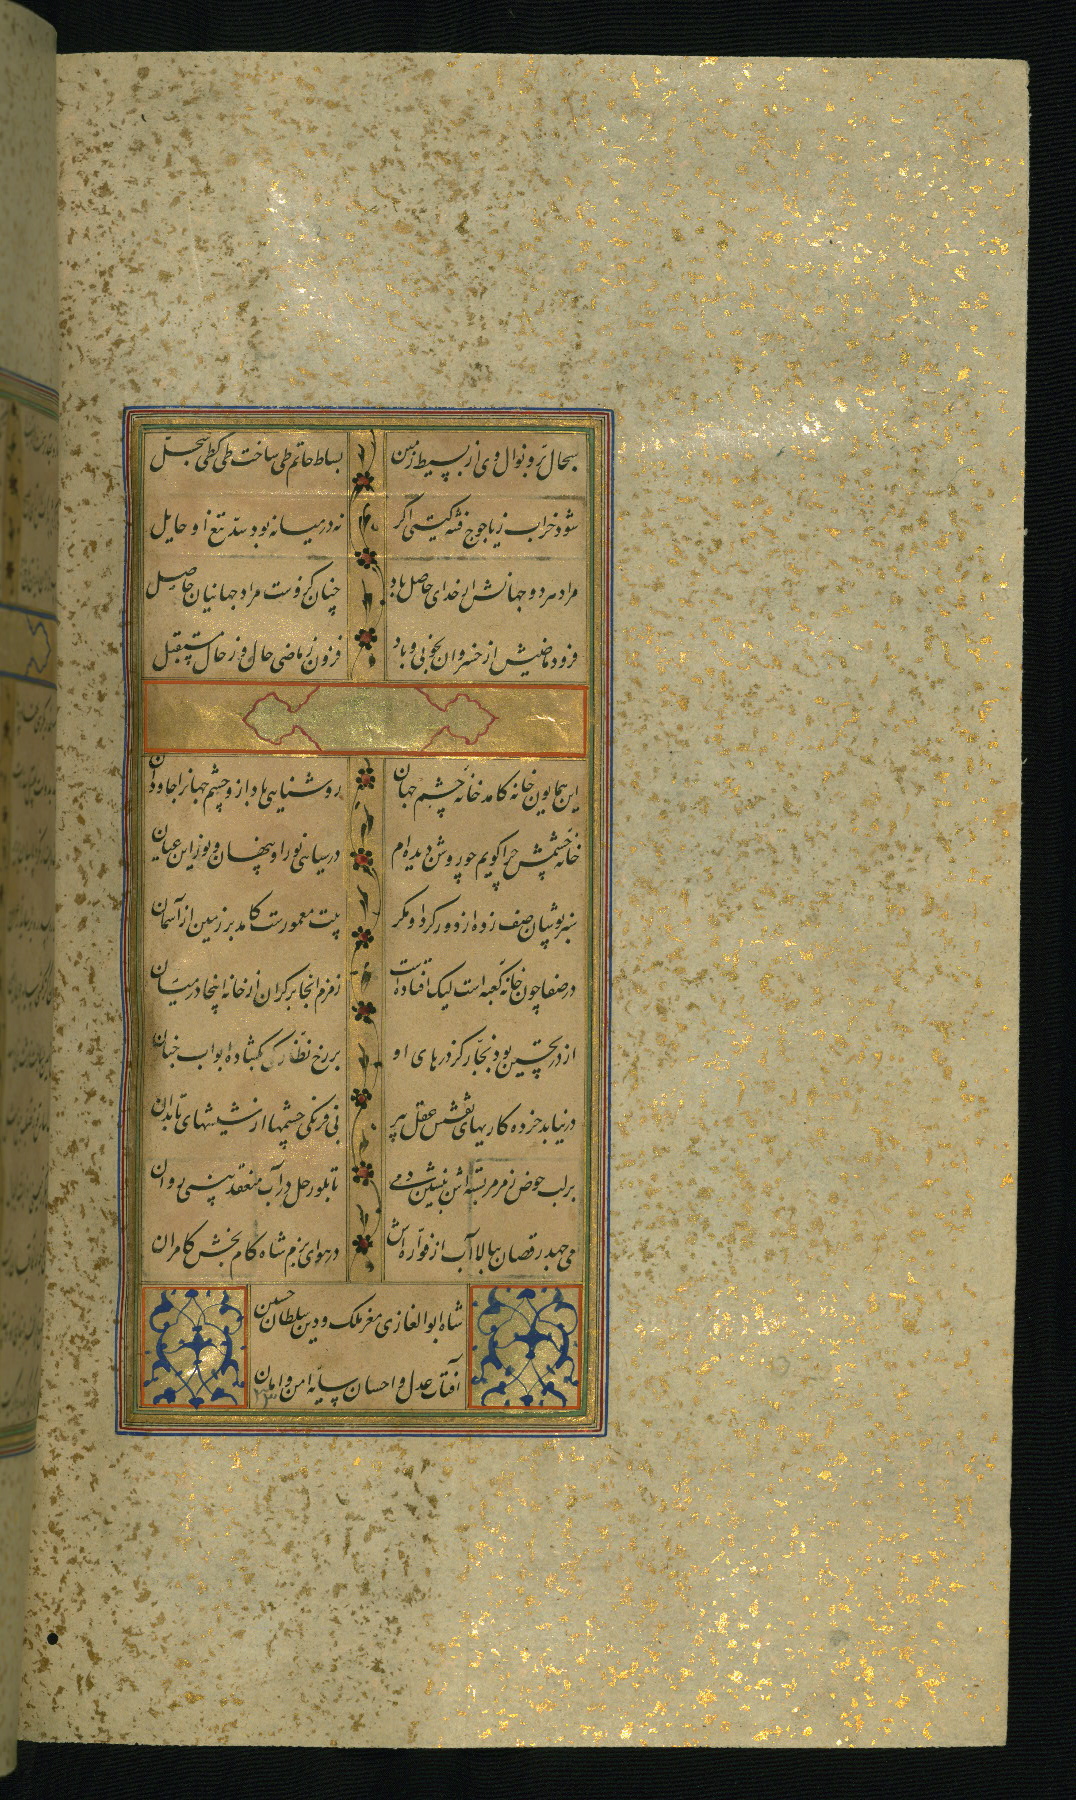 سجال بر و نوال وی از بسیط زمین
بساط حاتم طی ساخت طی کطی سجل
شود خراب ز یاجوج فتنه گیتی اگر
نه در میانه بود سد تیغ او حایل
مراد هر دو جهانش از خدای حاصل باد
چنان کزوست مراد جهانیان حاصل
فزود ماضیش از خسروان بخوبی و باد
فزون ز ماضی حال و ز حال مستقبل
این همایون خانه کامد خانه چشم جهان
روشنایی بادا زو چشم جهانرا جاودان
خانه چشمش چرا گویم چو روشن دیده‌ام
در سیاهی نور او پنهان و نور این عیان
سبزپوشان صف زده از دور گرد او مگر
بیت معمورست کامد بر زمین از آسمان
در صفا چون خانه کعبه است لیک افتاده است
زمزم آنجا بر کران از خانه اینجا در میان
از در تحسین بود نجار کز درهای او
بر رخ نظارگی بگشاده ابواب جنان
در نیابد خرده کاریهای نقشش عقل پیر
بی فرنگی چشمها از شیشهای تابدان
بر لب حوض ز مرمر بسته‌اش بنشین دمی
تا بلور حل در آب منعقد بینی روان
می جهد رقصان ببالا آب از فواره‌اش
در هوای بزم شاه کام بخش کامران
شاه ابوالغازی معز ملک و دین سلطان حسین
آفتاب عدل و احسان سایه امن و امان